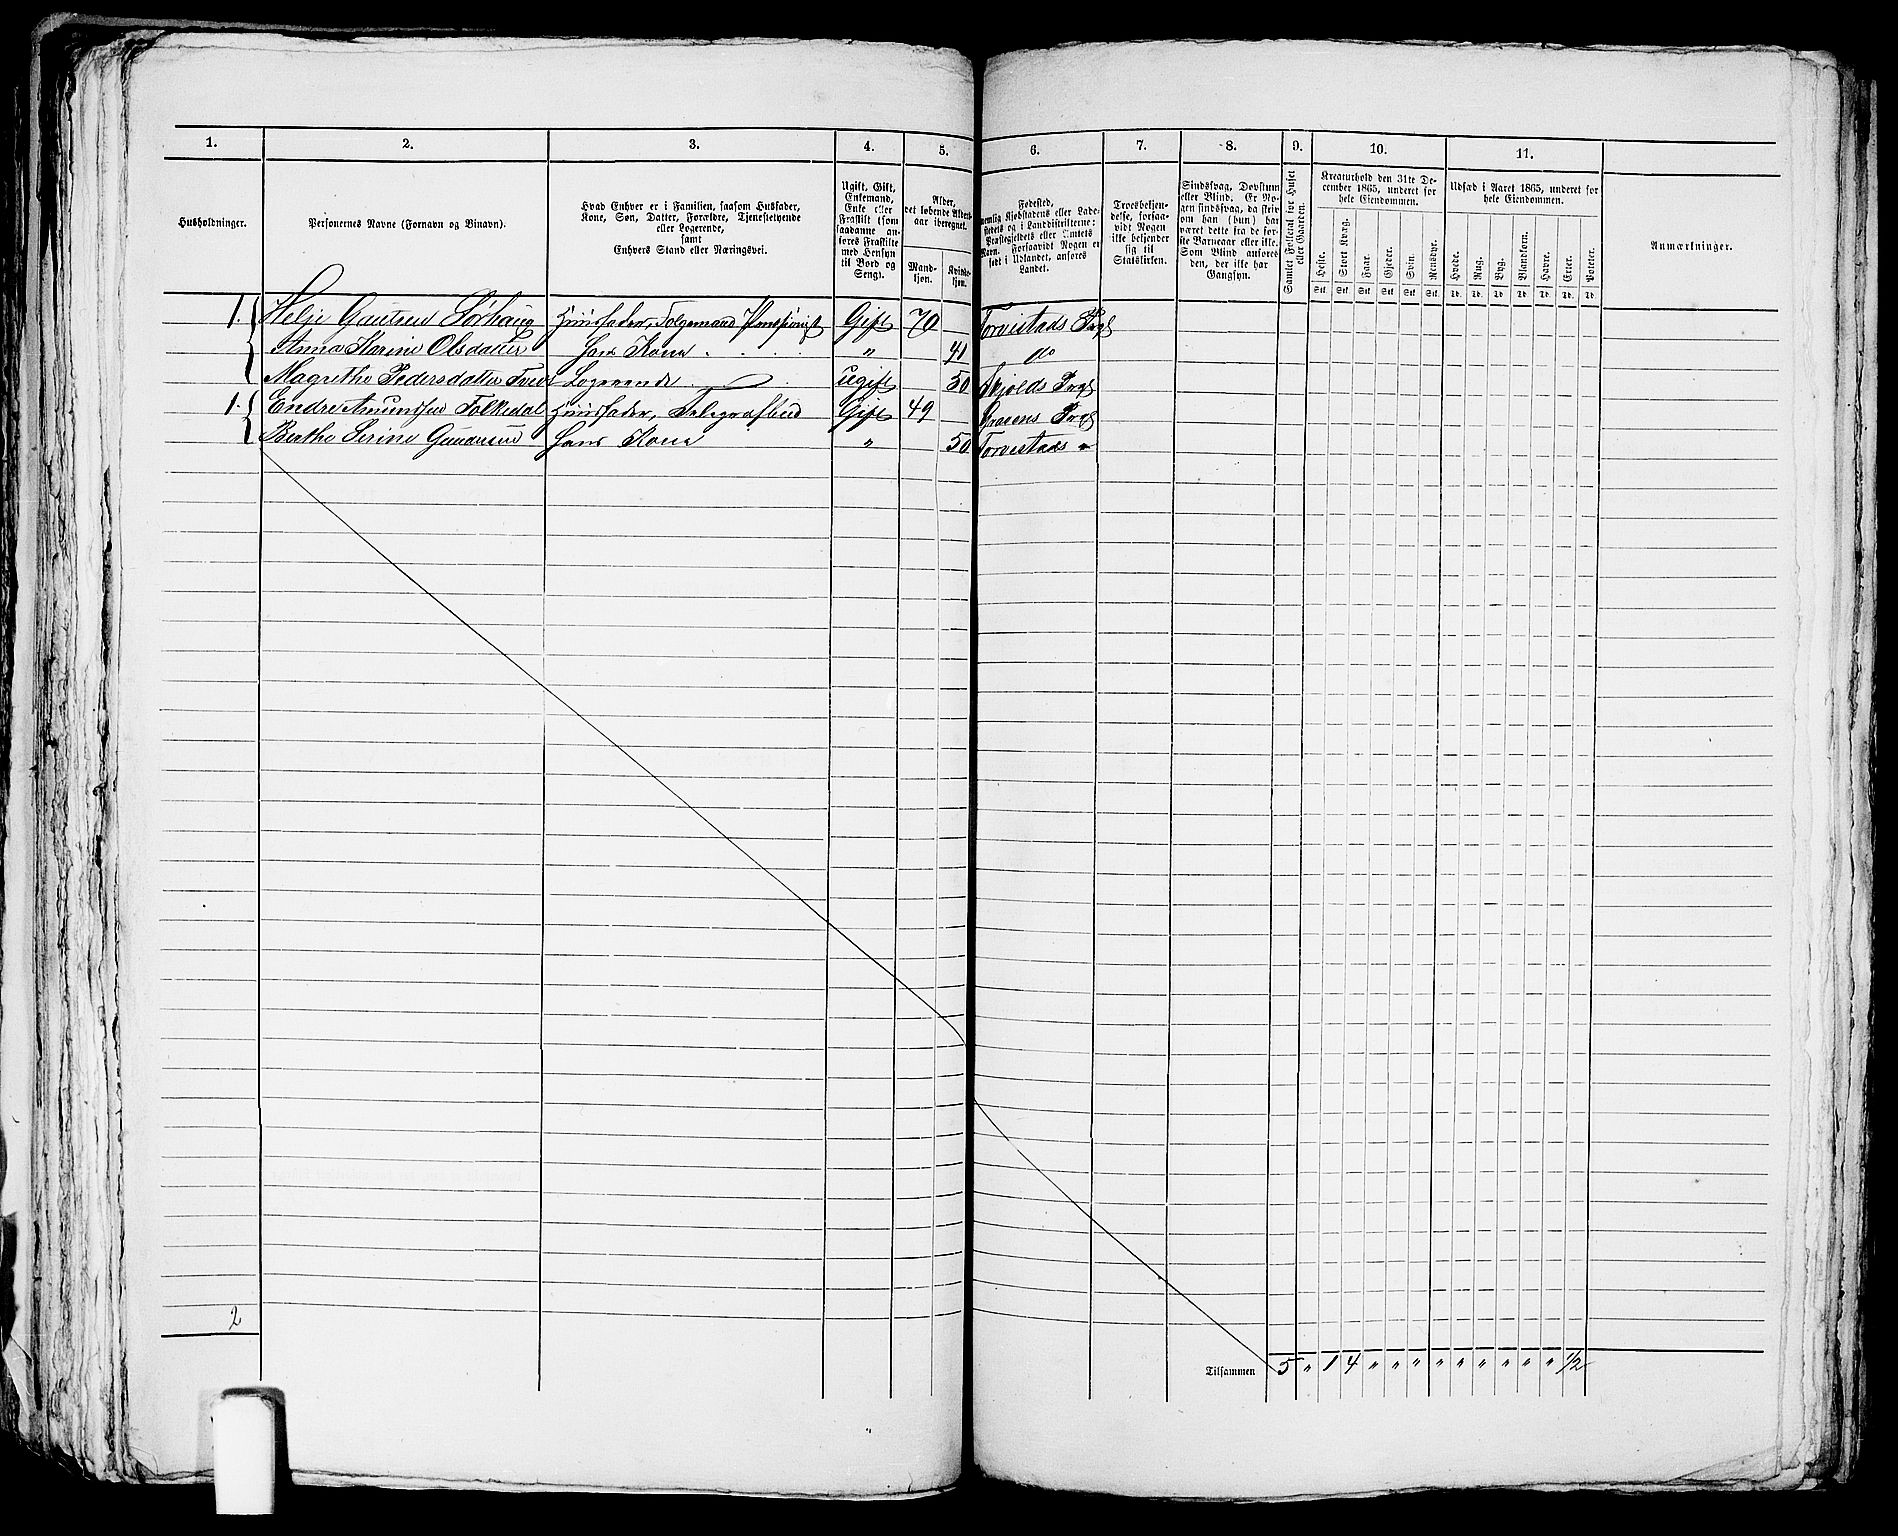 1. 2. 3. 4. 5. 6. 7. 8. 9. 10. 11.
Husholdninger.
Personernes Navne (Fornavn og Binavn).
Hvad Enhver er i Familien, saasom Husfader,
Kone, Søn, Datter, Forældre, Tjenestetyende
eller Logerende,
samt
Enhvers Stand eller Næringsvei.
Ugift, Gift,
Enkemand,
Enke eller
Fraskilt (som
saadanne an-
føres Fraskilte
med Hensyn
til Bord og
Seng).
Alder,
det løbende Alders-
aar iberegnet.
Mand-
kjøn.
Kvinde-
kjøn.
Fødested,
nemlig Kjøbstadens eller Lade-
stedets og i Landdistrikterne:
Præstegjeldets eller Sognets
Navn. Forsaavidt Nogen er
født i Udlandet, anføres
Landet.
Troesbekjen-
delse, forsaa-
vidt Nogen
ikke bekjender
sig til
Statskirken.
Sindssvag, Døvstum
eller Blind. Er No-
gen sindssvag, da skriv
om han (hun) har
været dette fra de før-
ste Barneaar eller ikke.
Som Blind anføres
den, der ikke har
Gangsyn.
Samlet Folketal for Huset
eller Gaarden.
Kreaturhold den 31te De-
cember 1865, underet for
hele Eiendommen.
Heste. Stort Kvæg. Faar. Gjeder. Svin. Rensdyr.
Stk. Stk. Stk. Stk. Stk. Stk.
Udsæd i Aaret 1865, underet for
hele Eiendommen.
Hvede. Rug. Byg. Blandkorn. Havre. Erter. Poteter.
Td. Td. Td. Td. Td. Td. Td.
Anmærkninger.
1. Helje Gautsen Sørhaug Huusfader, Folgemand Pensionist Gift 70 Torvestads Prgl
Anna Karine Olsdatter Hans Kone " 41 do
Magrethe Pedersdatter Logerende ugift 50 Skjolds Prgl
1. Endre Amundsen Folkedal Huusfader, Telegrafbud Gift 49 Gravens Prgl
Berthe Serine Hans Kone " 50 Torvestads "
2
Tilsammen 5 " 1 4 " " " " " " " " " " 1/2